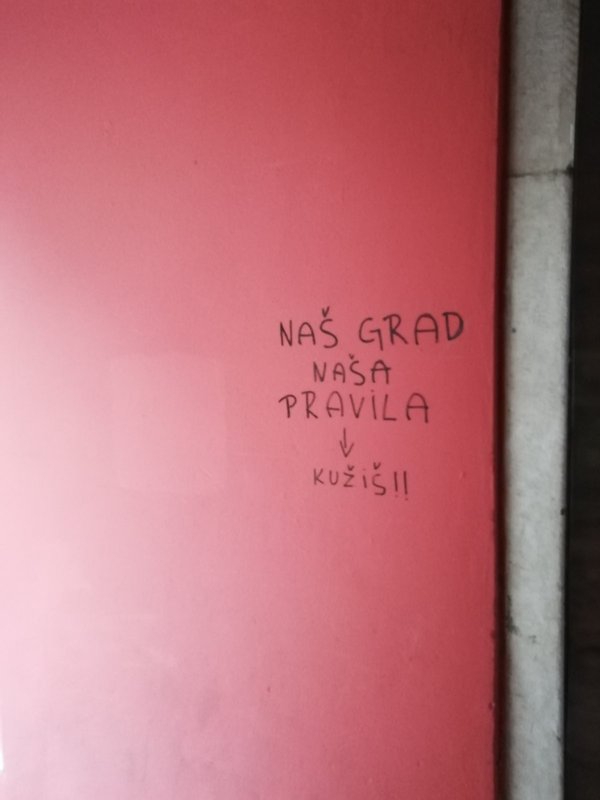 NAŠ GRAD
NAŠA
PRAVILA
↓
KUŽIŠ!!